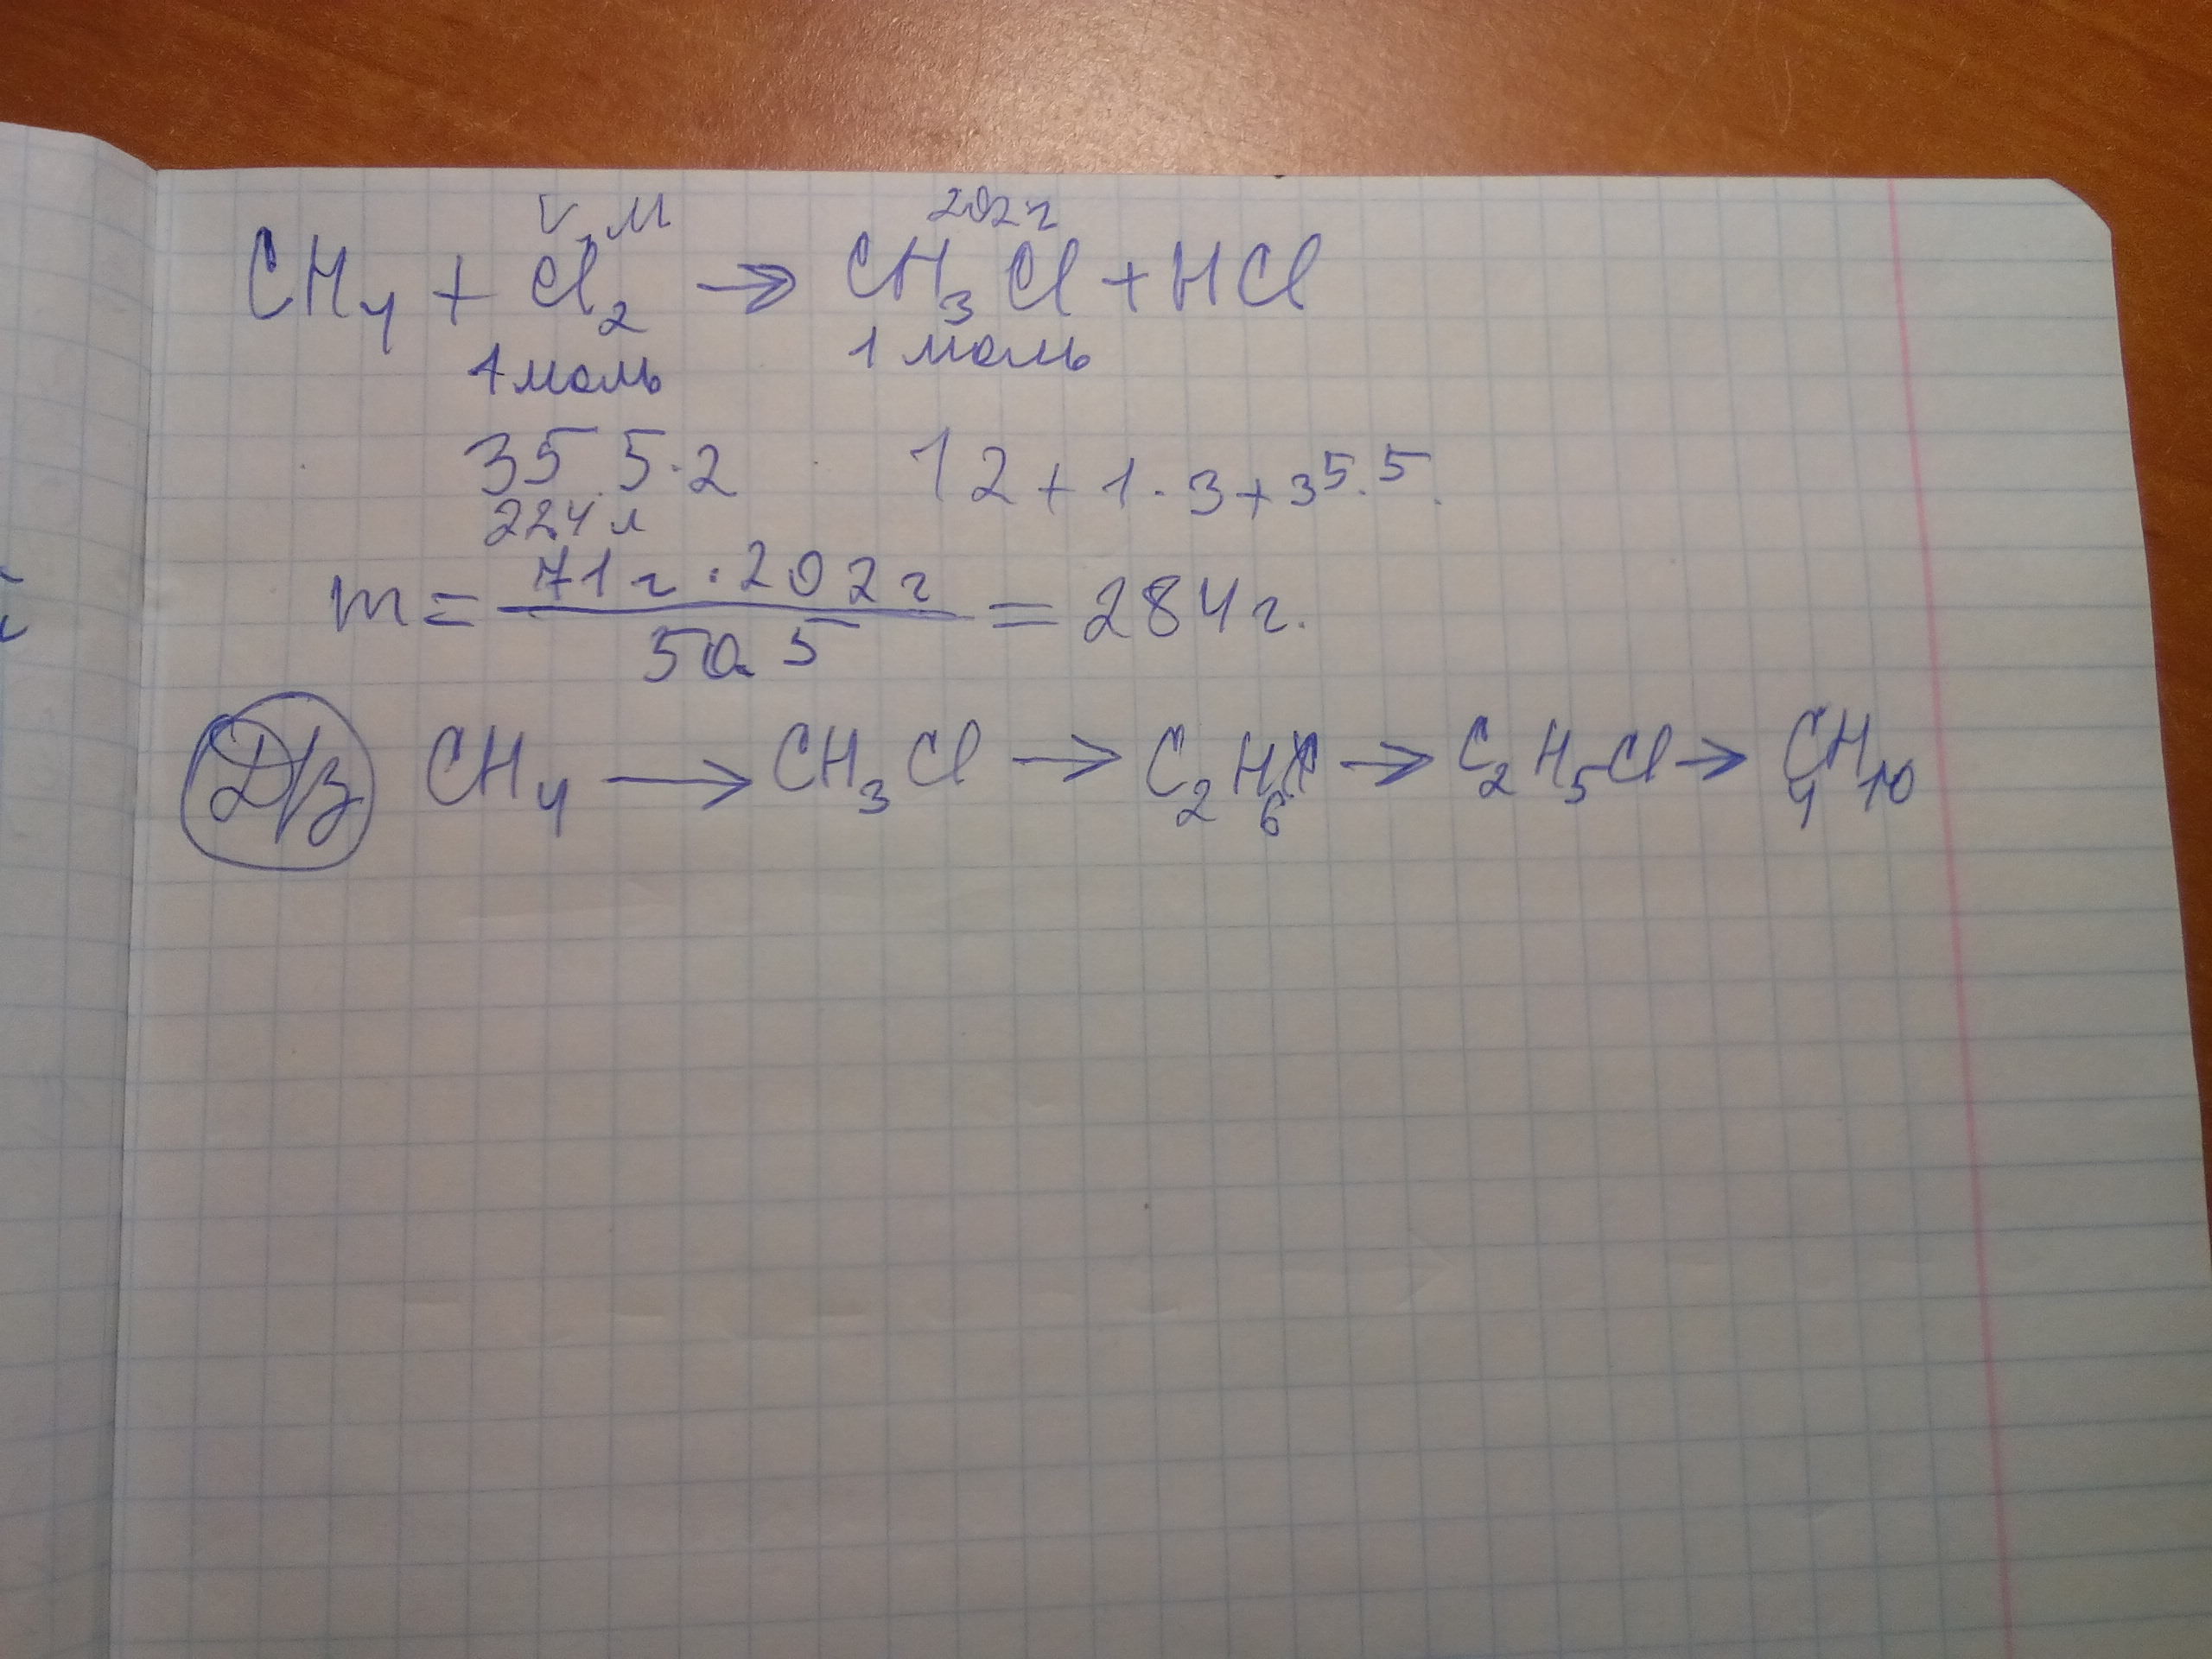 V, m 202 г
CH4 + Cl2 → CH3Cl + HCl
1 моль 1 моль
35.5·2 12+1·3+35.5.
22.4 л
m = 71 г · 202 г / 50.5 = 284 г.
Д/з CH4 → CH3Cl → C2H6 → C2H5Cl → C4H10